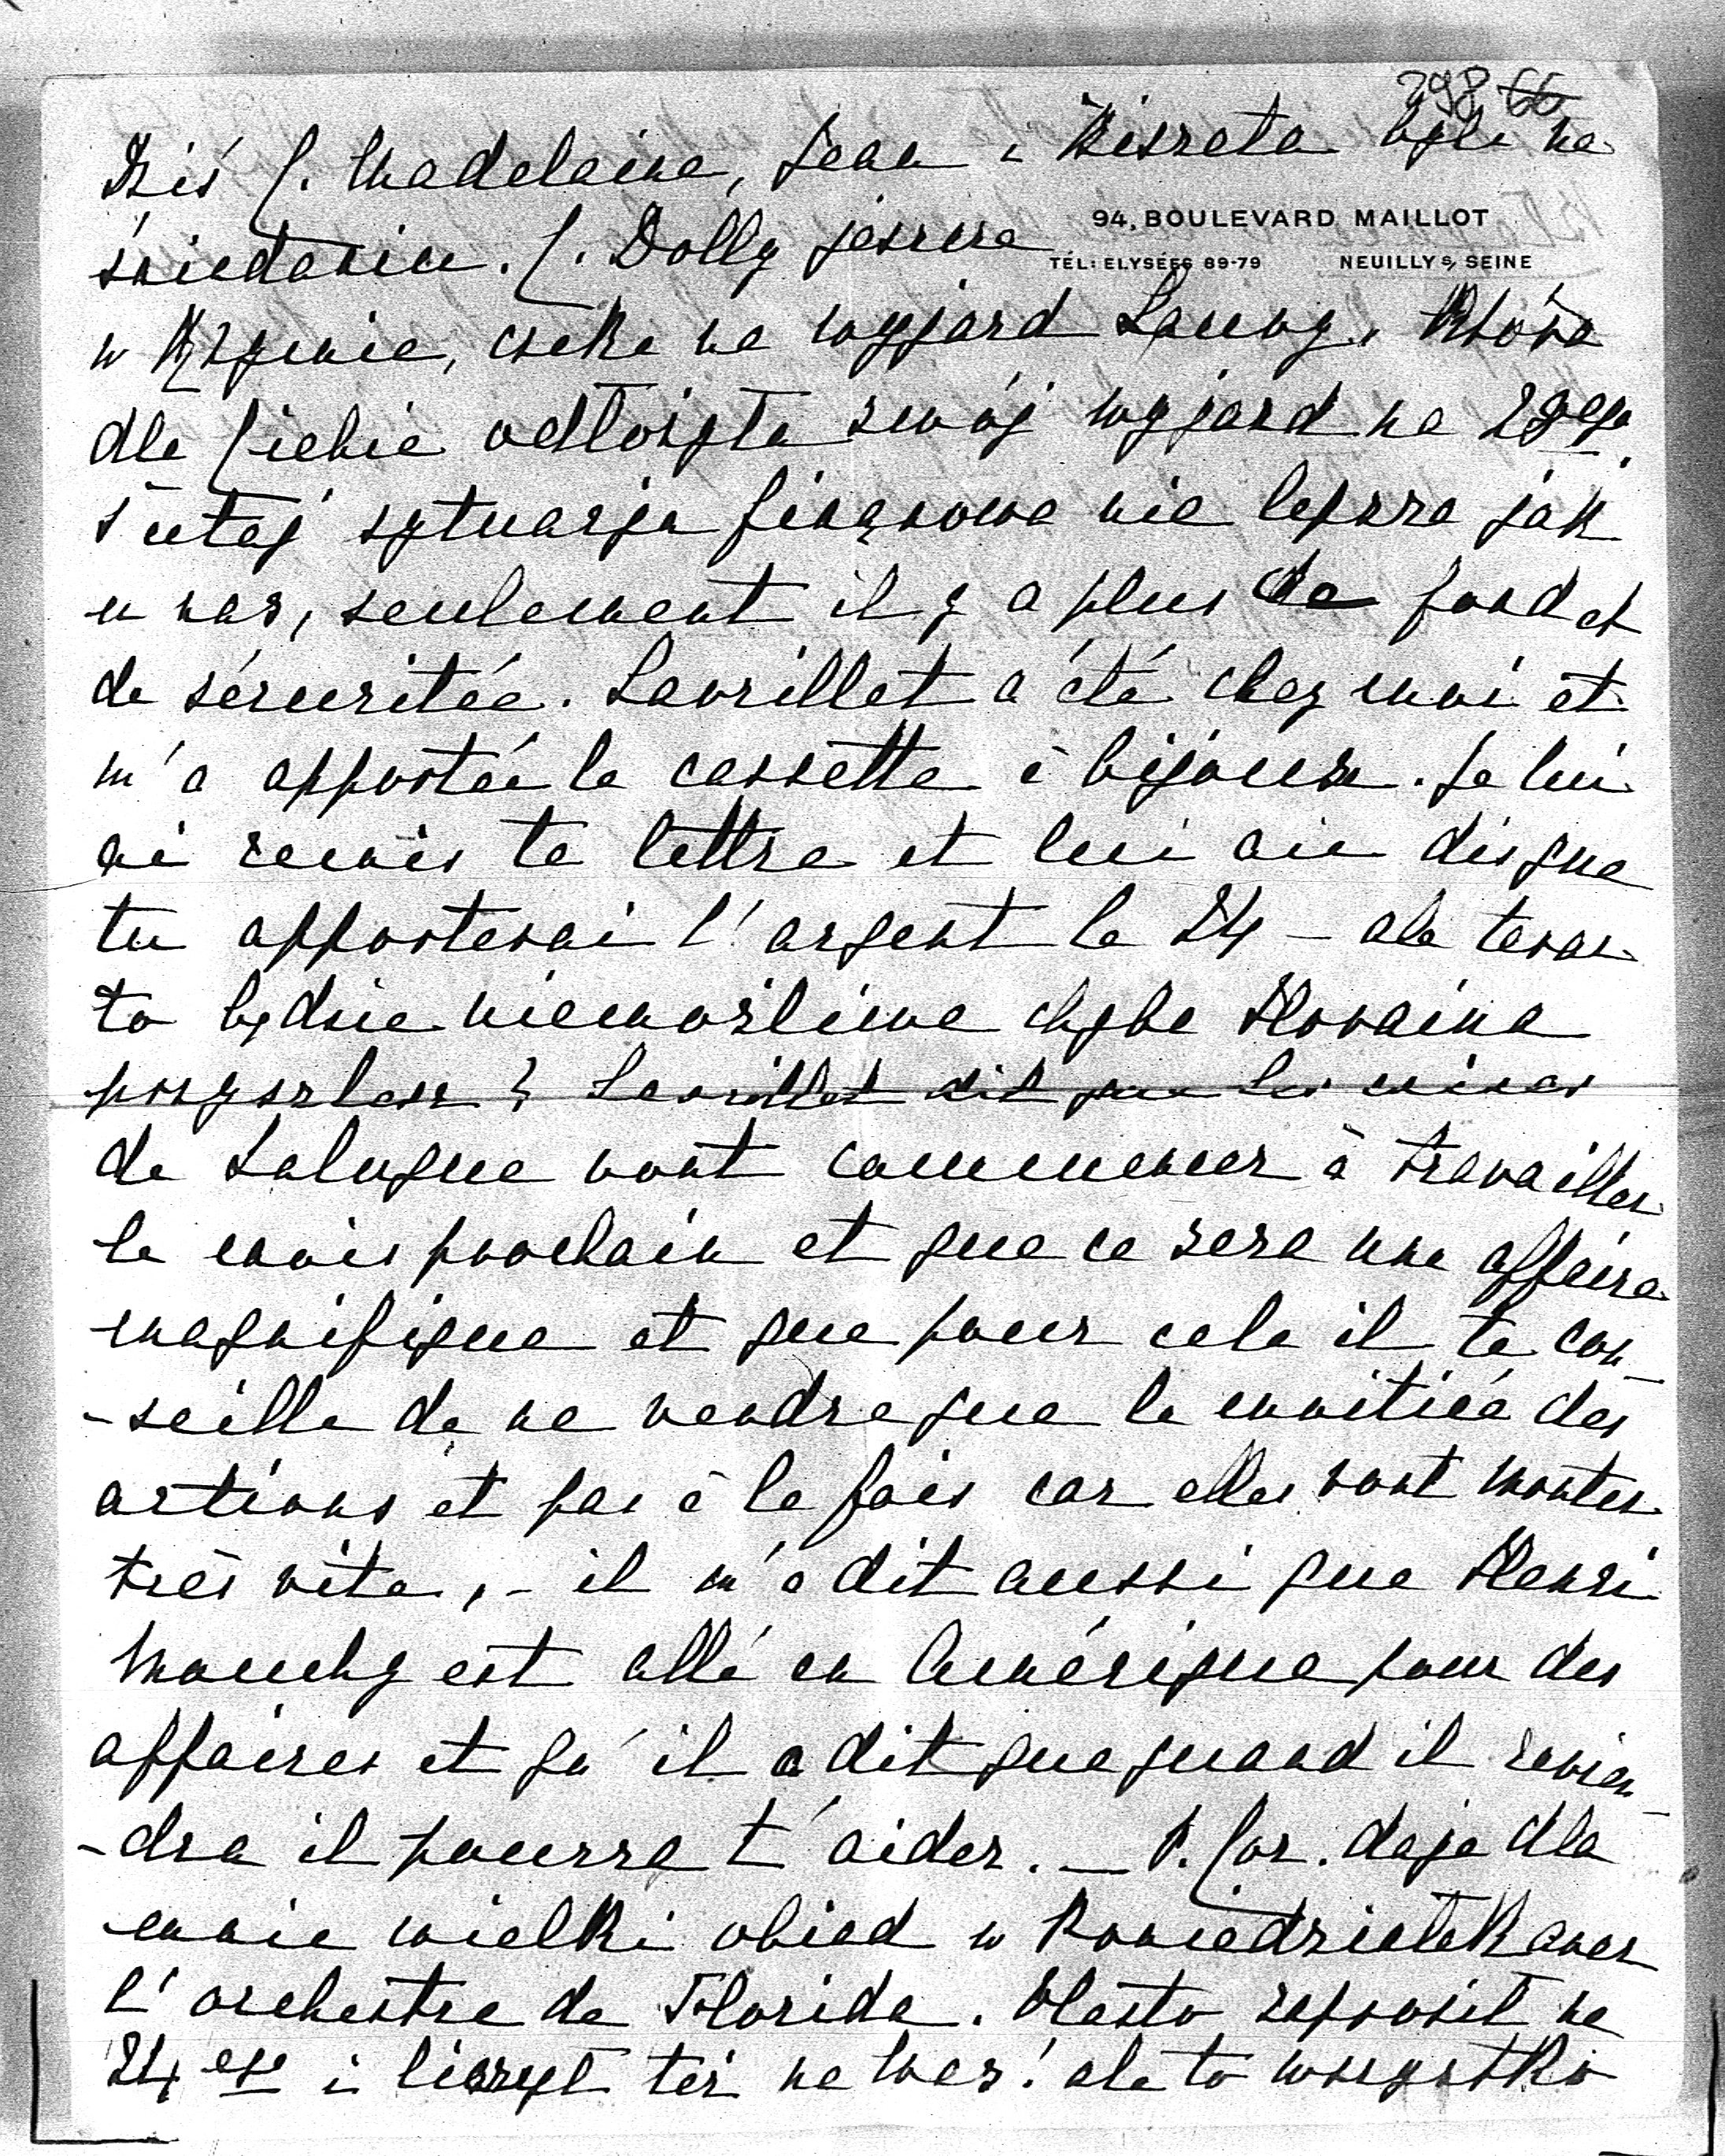 298 66
Dziś C. Madelaine, Jean i Biszeta byli na
94, BOULEVARD MAILLOT
śniadaniu. C. Dolly jeszcze
TÉL: ELYSÉES 69-79 NEUILLY S/ SEINE
w Rzymie, czeka na wyjazd Launy, która
dla Ciebie odłożyła swój wyjazd na 28ego.
Tutaj sytuacja finansowa nie lepsza jak
u nas, seulement il y a plus de fond et
de sécuritée. Lavrillet a été chez moi et
m'a apportée la cassette à bijoux. Je lui
ai remis ta lettre et lui ai dis que
tu apporterai l'argent le 24 – ale teraz
to będzie niemożliwe chyba
Lavrillet dit que les mines
de vont commencer à travailler
le mois prochain et que ce sera une affaire
magnifique et que pour cela il te con-
-seille de ne vendre que la moitiée des
actions et pas à la fois car elles vont monter
très vite, – il m'a dit aussi que Henri
Mouchy est allé en Amérique pour des
affaires et qu'il a dit que quand il revien-
-dra il pourra t'aider. — P. Cor. daje dla
mnie wielki obiad w Poniedziałek avec
l'orchestre de Florida. zaprosił na
24ego i liczył też na Was! ale to wszystko